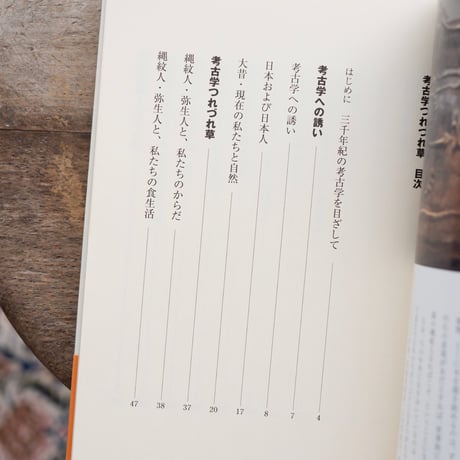 考古学つれづれ草 目次
はじめに 三千年紀の考古学を目ざして 4
考古学への誘い 7
考古学への誘い 8
日本および日本人 17
大昔・現在の私たちと自然 20
考古学つれづれ草 37
縄紋人・弥生人と、私たちのからだ 38
縄紋人・弥生人と、私たちの食生活 47